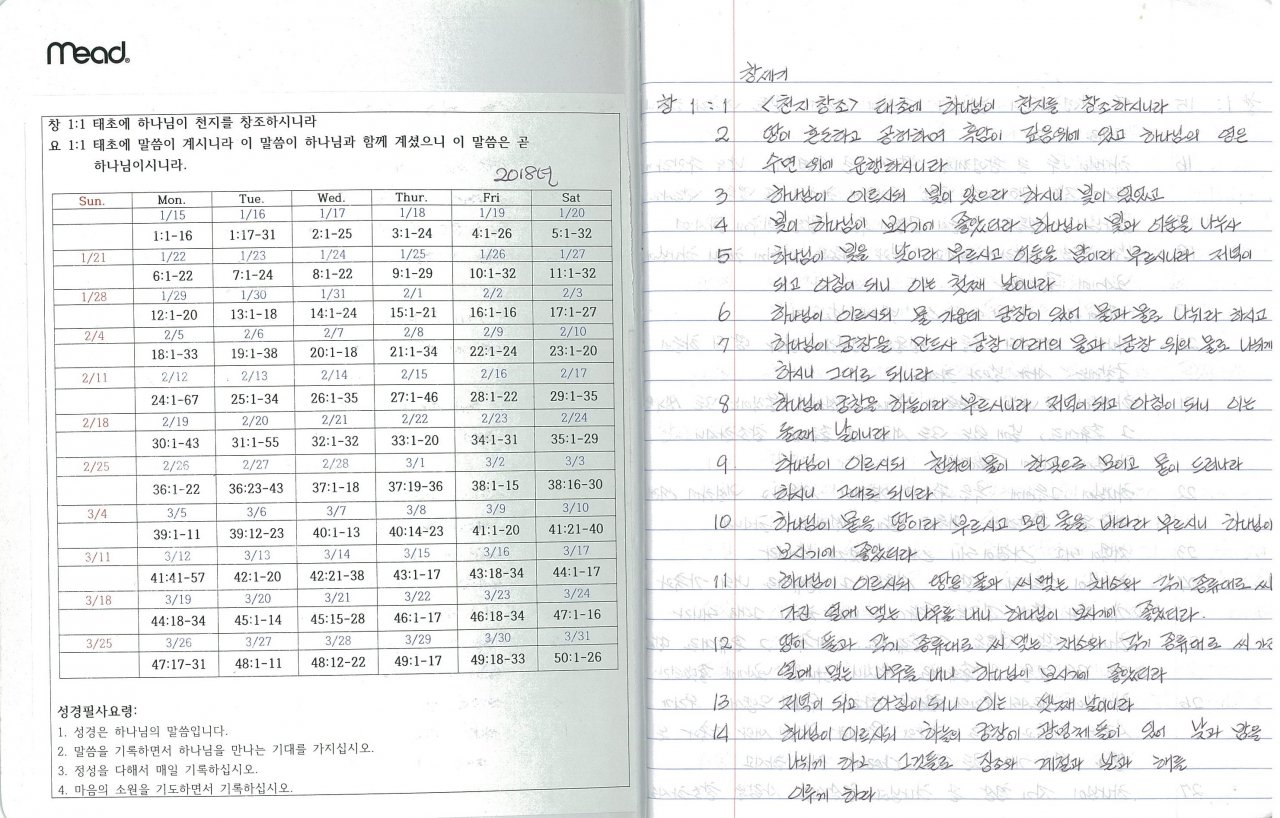 Mead
창 1:1 태초에 하나님이 천지를 창조하시니라
요 1:1 태초에 말씀이 계시니라 이 말씀이 하나님과 함께 계셨으니 이 말씀은 곧
하나님이시니라.
2018년
Sun. Mon. Tue. Wed. Thur. Fri Sat
1/15 1/16 1/17 1/18 1/19 1/20
1:1-16 1:17-31 2:1-25 3:1-24 4:1-26 5:1-32
1/21 1/22 1/23 1/24 1/25 1/26 1/27
6:1-22 7:1-24 8:1-22 9:1-29 10:1-32 11:1-32
1/28 1/29 1/30 1/31 2/1 2/2 2/3
12:1-20 13:1-18 14:1-24 15:1-21 16:1-16 17:1-27
2/4 2/5 2/6 2/7 2/8 2/9 2/10
18:1-33 19:1-38 20:1-18 21:1-34 22:1-24 23:1-20
2/11 2/12 2/13 2/14 2/15 2/16 2/17
24:1-67 25:1-34 26:1-35 27:1-46 28:1-22 29:1-35
2/18 2/19 2/20 2/21 2/22 2/23 2/24
30:1-43 31:1-55 32:1-32 33:1-20 34:1-31 35:1-29
2/25 2/26 2/27 2/28 3/1 3/2 3/3
36:1-22 36:23-43 37:1-18 37:19-36 38:1-15 38:16-30
3/4 3/5 3/6 3/7 3/8 3/9 3/10
39:1-11 39:12-23 40:1-13 40:14-23 41:1-20 41:21-40
3/11 3/12 3/13 3/14 3/15 3/16 3/17
41:41-57 42:1-20 42:21-38 43:1-17 43:18-34 44:1-17
3/18 3/19 3/20 3/21 3/22 3/23 3/24
44:18-34 45:1-14 45:15-28 46:1-17 46:18-34 47:1-16
3/25 3/26 3/27 3/28 3/29 3/30 3/31
47:17-31 48:1-11 48:12-22 49:1-17 49:18-33 50:1-26
성경필사요령:
1. 성경은 하나님의 말씀입니다.
2. 말씀을 기록하면서 하나님을 만나는 기대를 가지십시오.
3. 정성을 다해서 매일 기록하십시오.
4. 마음의 소원을 기도하면서 기록하십시오.
창세기
창 1:1 <천지창조> 태초에 하나님이 천지를 창조하시니라
2 땅이 혼돈하고 공허하여 흑암이 깊음위에 있고 하나님의 영은
수면 위에 운행하시니라
3 하나님이 이르시되 빛이 있으라 하시니 빛이 있었고
4 빛이 하나님이 보시기에 좋았더라 하나님이 빛과 어둠을 나누사
5 하나님이 빛을 낮이라 부르시고 어둠을 밤이라 부르시니라 저녁이
되고 아침이 되니 이는 첫째 날이니라
6 하나님이 이르시되 물 가운데 궁창이 있어 물과 물로 나뉘라 하시고
7 하나님이 궁창을 만드사 궁창 아래의 물과 궁창 위의 물로 나뉘게
하시니 그대로 되니라
8 하나님이 궁창을 하늘이라 부르시니라 저녁이 되고 아침이 되니 이는
둘째 날이니라
9 하나님이 이르시되 천하의 물이 한곳으로 모이고 뭍이 드러나라
하시니 그대로 되니라
10 하나님이 뭍을 땅이라 부르시고 모인 물을 바다라 부르시니 하나님이
보시기에 좋았더라
11 하나님이 이르시되 땅은 풀과 씨 맺는 채소와 각기 종류대로 씨
가진 열매 맺는 나무를 내니 하나님이 보시기에 좋았더라.
12 땅이 풀과 각기 종류대로 씨 맺는 채소와 각기 종류대로 씨 가진
열매 맺는 나무를 내니 하나님이 보시기에 좋았더라
13 저녁이 되고 아침이 되니 이는 셋째 날이니라
14 하나님이 이르시되 하늘의 궁창에 광명체들이 있어 낮과 밤을
나뉘게 하고 그것들로 징조와 계절과 날과 해를
이루게 하라